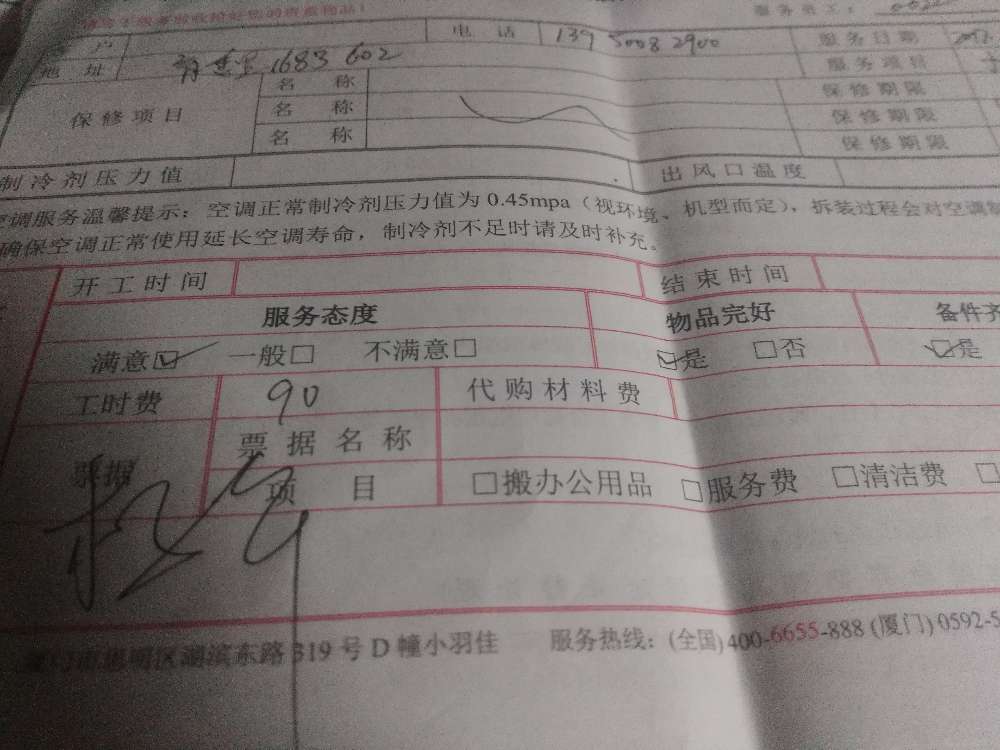 服务员工：
户 电话 139 5008 2900 服务日期
地址 1683 602 服务项目
保修项目 名称 保修期限
名称 保修期限
名称 保修期限
制冷剂压力值 出风口温度
空调服务温馨提示：空调正常制冷剂压力值为0.45mpa（视环境、机型而定），拆装过程会对空调制
确保空调正常使用延长空调寿命，制冷剂不足时请及时补充。
开工时间 结束时间
服务态度 物品完好 备件齐
满意☑ 一般□ 不满意□ ☑是 □否 ☑是
工时费 90 代购材料费
票据 票据名称
项目 □搬办公用品 □服务费 □清洁费 □
厦门市思明区湖滨东路319号D幢小羽佳 服务热线：(全国)400-6655-888 (厦门)0592-5